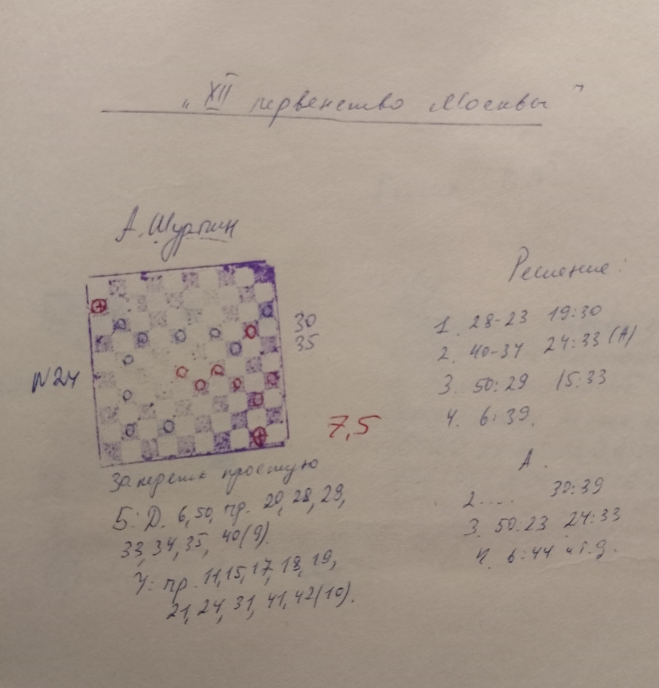 „XII первенство Москвы"
А. Шурпин
N24
30
35
7,5
Запереть простую
Б: Д. 6, 50, пр. 20, 28, 29,
33, 34, 35, 40 (9).
Ч: пр. 11, 15, 17, 18, 19,
21, 24, 31, 41, 42 (10).
Решение:
1. 28-23 19:30
2. 40-34 24:33 (А)
3. 50:29 15:33
4. 6:39.
А.
2.... 30:39
3. 50:23 24:33
4. 6:44 и т.д.